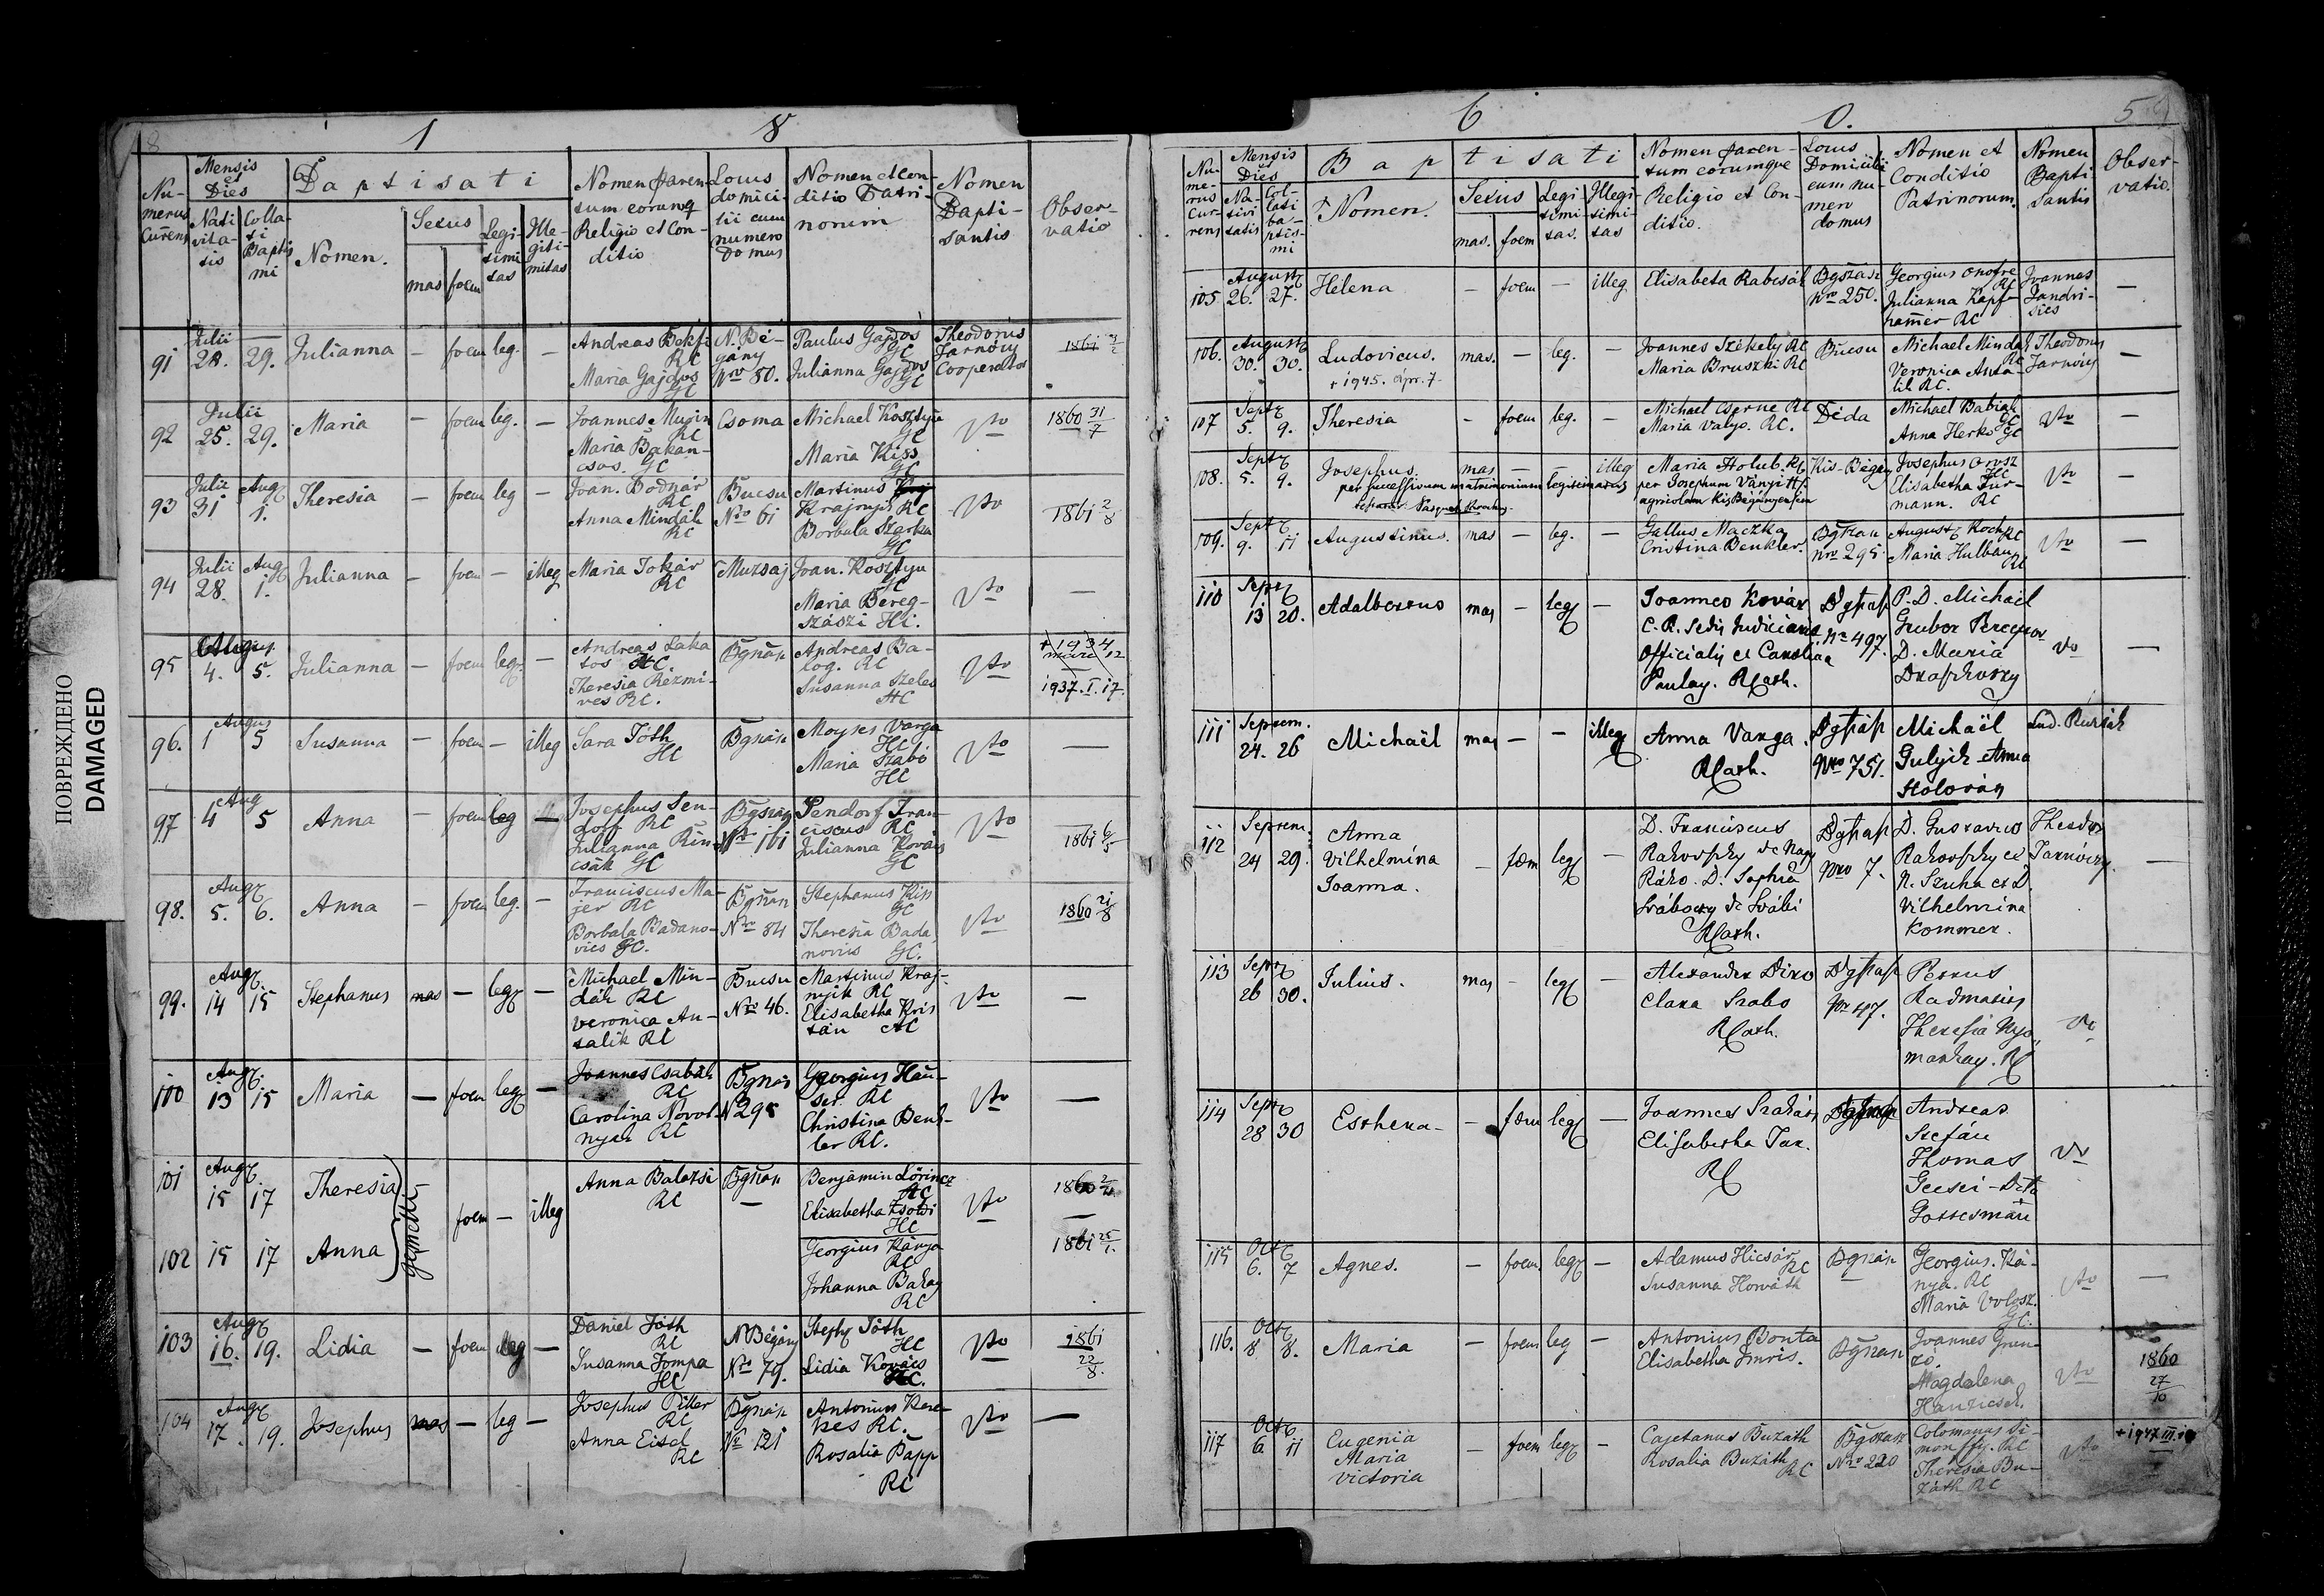 ПОВРЕЖДЕНО
DAMAGED
1 8
Numerus Currens
Mensis et Dies
Nativitatis
Collati Baptismi
Baptisati
Nomen.
Sexus
mas foem
Legitimitas
Illegitimitas
Nomen Paren-
tum eorumq
Religio et Con-
ditio
Locus
domici-
lii cum
numero
Domus
Nomen et con-
ditio Patri-
norum
Nomen
Bapti-
santis
Obser-
vatio
91 Julii 28. 29. Julianna – foem leg. –
Andreas Bekfi RC
Maria Gajdos GC
N. Bé-
gány
Nro 80.
Paulus Gajdos GC
Julianna Gajdos GC
Theodorus
Jarnóvy
Cooperator
1861
92 Julii 25. 29. Maria – foem leg. –
Joannes Mugin RC
Maria Bakan-
csos. GC
Csoma
Michael Kosztyu GC
Maria Kiss GC
Dto
1860 31/7
93 Julii 31 Aug 1. Theresia – foem leg –
Joan. Bodnár RC
Anna Mindák RC
Bucsu
Nro 61
Martinus
Krajnyik RC
Borbala GC
Dto
1861 2/8
94 Julii 28. Aug 1. Julianna – foem – illeg
Maria Tokár RC
Muzsaj
Joan. Kosztyu GC
Maria Bereg-
szászi HC.
Dto
—
95 August 4. 5. Julianna – foem leg. –
Andreas Laka
tos HC.
Theresia Rezmi-
ves RC.
Bgszász
Andreas Ba-
log. RC
Susanna Szeles HC
Dto
1937. I. 17.
96. Augus 1 5 Susanna – foem – illeg
Sara Tóth HC
Bgszász
Moyses Varga HC
Maria Szabó HC
Dto
—
97 Aug 4 5 Anna – foem leg –
Josephus Sen-
dorf RC
Julianna Rin-
csák GC
Bgszász
Nro 161
Sendorf Fran-
ciscus RC
Julianna Kovács GC
Dto
1861 6/5
98. Aug 5. 6. Anna – foem leg. –
Franciscus Ma-
jer RC
Borbala Badano-
vics GC.
Bgszász
Nro 84
Stephanus Kiss GC
Theresia Bada
novics GC.
Dto
1860 21/8
99. Aug 14 15 Stephanus mas – leg –
Michael Min-
dák RC
Veronica An-
talik RC
Bucsu
Nro 46.
Martinus Kraj-
nyik RC
Elisabetha Kris
tán RC
Dto
—
100 Aug 13 15 Maria – foem leg –
Joannes Csabák RC
Carolina Novot-
nyak RC
Bgszász
N 295
Georgius Hau-
ser. RC
Christina Benk-
ler RC.
Dto
—
101 Aug 15 17 Theresia
102 15 17 Anna
gemelli
foem – illeg
Anna Balazsi RC
Bgszász
—
Benjamin Lörincz RC
Elisabetha Zsoldi HC
Georgius Kánya RC
Johanna Bakay RC
Dto
1860
1861 25/1.
103 Aug 16. 19. Lidia – foem leg –
Daniel Tóth RC
Susanna Tompa HC
N Bégány
Nro 79.
Steph Tóth HC
Lidia Kovács HC.
Dto
1861
22/8.
104 Aug 17. 19. Josephus mas – leg –
Josephus Piller RC
Anna Eisel RC
Bgszász
No 121
Antonius Kere-
kes RC.
Rosalia Papp RC
Dto
—
6 0.
59
Nu-
me-
rus
Cur-
rens
Mensis
Dies
Na-
tivi
tatis
Col-
lati
ba-
ptis-
mi
Baptisati
Nomen.
Sexus
mas. foem
Legi
timi
tas.
Illegi
timi-
tas
Nomen Paren-
tum eorumque
Religio et Con-
ditio.
Locus
Domicilii
cum nu-
mero
domus
Nomen et
Conditio
Patrinorum.
Nomen
Bapti
santis
Obser-
vatio.
105 August 26. 27. Helena – foem – illeg.
Elisabeta Rabcsák
Bgszász
Nro 250.
Georgius Onofre RC
Julianna Kapf-
hamer RC
Joannes
Jandri-
sics
—
106. August 30. 30. Ludovicus. mas. – leg. –
+ 1945. ápr. 7.
Joannes Székely RC
Maria Bruszki RC
Bucsu
Michael Mindák RC
Veronica Anta-
lik RC.
Theodorus
Jarnóvy
—
107 Sept 5. 9. Theresia – foem leg. –
Michael Cserne RC
Maria Valyo. RC.
Déda
Michael Babiak GC
Anna Herko GC
Dto
—
108. Sept 5. 9. Josephus. mas – illeg
per successivum matrimonium legitimatus
Maria Holub. RC
per Josephum Ványi HC
agricolam KisBégányensem
Kis-Bégány
Josephus Orosz HC
Elisabetha Fur-
mann. RC
Dto
—
109. Sept 9. 11 Augustinus. mas – leg. –
Gallus Maczka
Cristina Benkler.
Bgszász
Nro 295
August Koch RC
Maria Hulbán RC
Dto
—
110 Sept 13 20. Adalbertus mas – leg –
Joannes Kovár
C. R. Sedis Judiciariae
Officialis et Carolina
Paulay. RCath.
Bgszász
Nr 497.
P. D. Michael
Gruber Perceptor
D. Maria
Draskovszky
Dto
—
111 Septem. 24. 26 Michaël mas – – illeg
Anna Varga.
RCath.
Bgszász
Nro 751.
Michaël
Gulyik Anna
Holován
Lud.
112 Septem. 24 29. Anna
Vilhelmina
Joanna.
– fœm leg –
D. Franciscus
Rakovszky de Nagy
Ráko. D. Sophia
Svábovszky de Svábi
RCath.
Bgszász
Nro 7.
D. Gustavus
Rakovszky et
N. Szuha et D.
Vilhelmina
Kommer.
Theodor
Jarnóvzy
—
113 Sept 26 30. Julius. mas – leg –
Alexander Diro
Clara Szabo
RCath.
Bgszász
Nr 47.
Petrus
Radmasics
Theresia Nyo-
markay. RC
Dto
114 Sept 28 30 Esthera – – fœm leg –
Joannes Szakács
Elisabetha Tar.
RC
Bgszász
Andreas
Stefán
Thomas
Gecsei –
Gottesmann
Dto
115 Oct 6. 7 Agnes. – foem leg –
Adamus Hicsár RC
Susanna Horváth
Bgszász
—
Georgius. Ká-
nya. RC
Maria Volosz. GC.
Dto
—
116. Oct 8 8. Maria – foem leg –
Antonius Bonta
Elisabetha Imris.
Bgszász
Joannes Gren-
zo.
Magdalena
Dto
1860
27/10
117 Oct 6 11 Eugenia
Maria
Victoria
– foem leg –
Cajetanus Buzáth
Rosalia Buzáth RC
Bgszász
Nro 220
Colomanus Si-
mon RC
Theresia Bu-
záth RC
Dto
+ 1947 III. 19